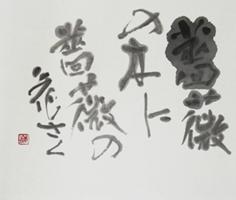 薔薇
の木に
薔薇の
花さく